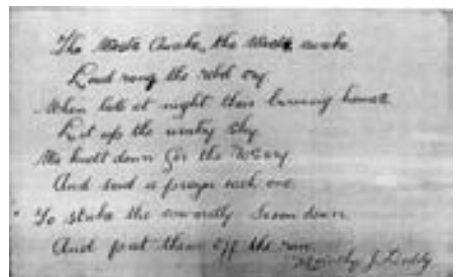 The West's Awake, the West's awake
Loud rang the rebel cry
When late at night their burning homes
Lit up the wintry sky
We knelt down for the Rosary
And said a prayer each one
To strike the cowardly down
And put them off the run.
Timothy J.